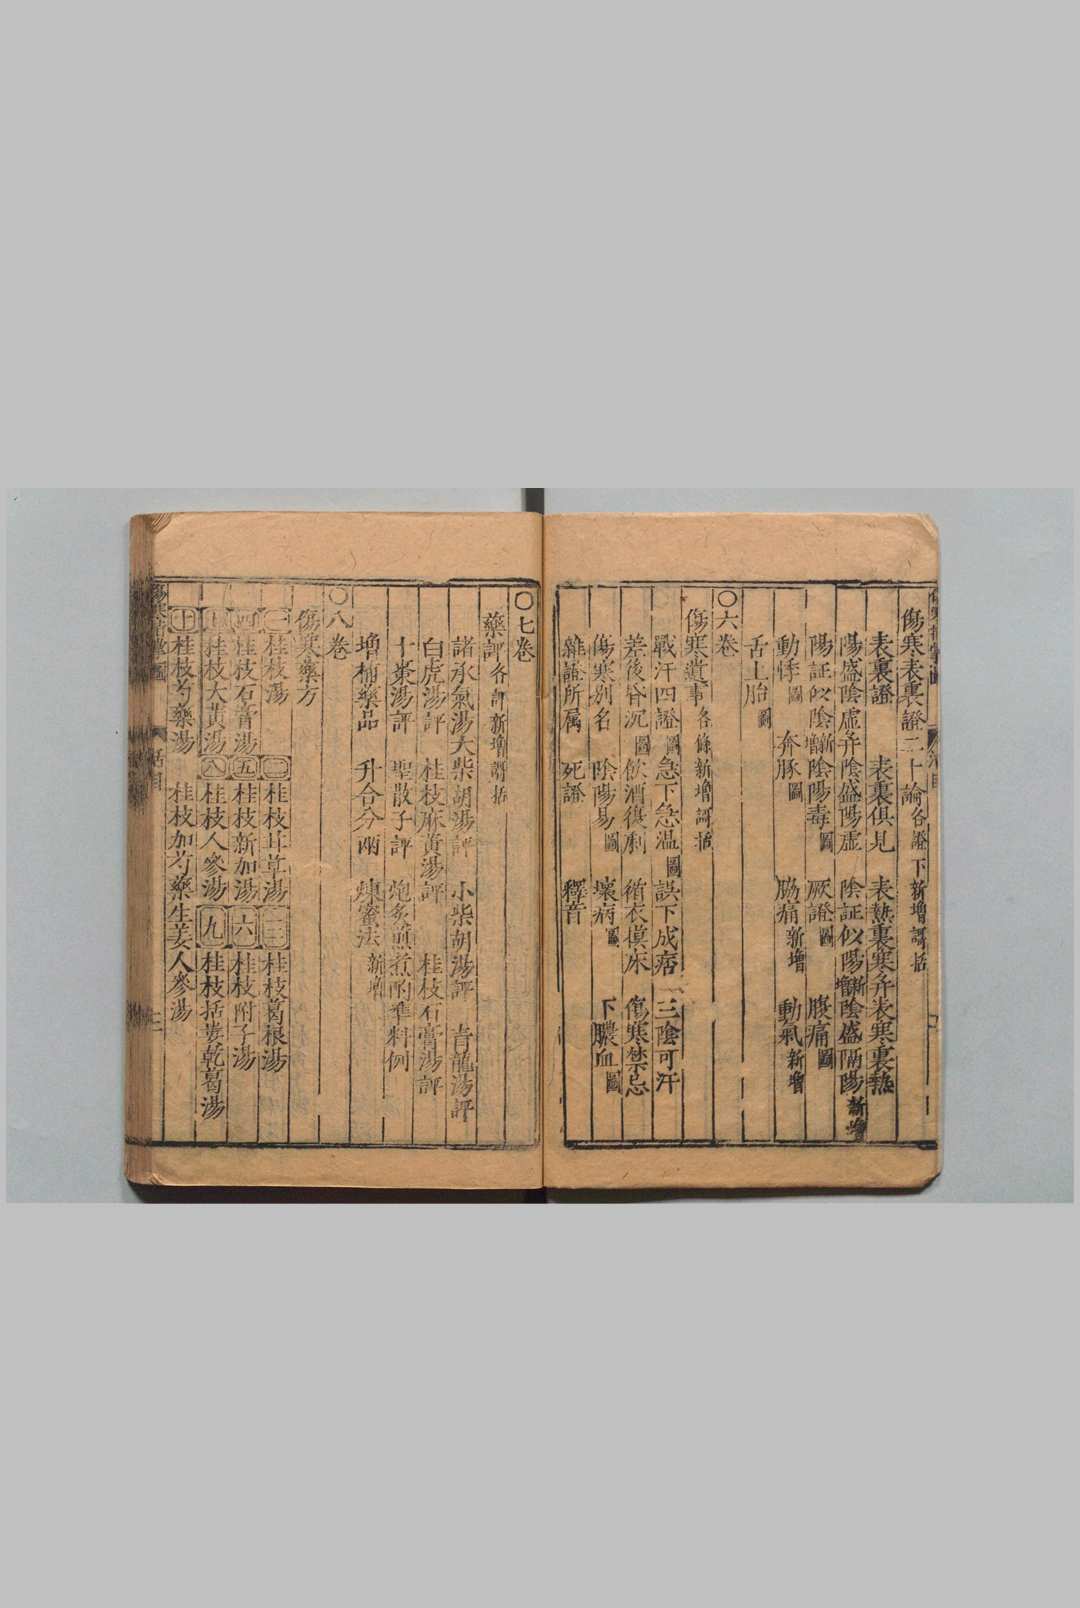 傷寒表裏證二十論各證下新增謌括
表裏證 表裏俱見 表熱裏寒并表寒裏熱
陽盛陰虛并陰盛陽虛 陰証似陽新增陰盛隔陽新增
陽証似陰新增陰陽毒圖 厥證圖 腹痛圖
動悸圖 奔豚圖 脇痛新增 動氣新增
舌上胎圖
○六卷
傷寒遺事各條新增謌括
戰汗四證圖急下急溫圖誤下成痞 三陰可汗
差後昏沉圖飲酒復劇 循衣摸床 傷寒禁忌
傷寒別名 陰陽易圖 壞病圖 下膿血圖
雜證所属 死證 釋音
○七卷
藥評各評新增謌括
諸承氣湯大柴胡湯評 小柴胡湯評 青龍湯評
白虎湯評 桂枝麻黃湯評 桂枝石膏湯評
十棗湯評 聖散子評 炮炙煎煮酌準料例
增補藥品 升合分兩 煉蜜法新增
○八卷
傷寒藥方
一桂枝湯 二桂枝甘草湯三桂枝葛根湯
四桂枝石膏湯五桂枝新加湯六桂枝附子湯
七桂枝大黃湯八桂枝人參湯九桂枝括蔞乾葛湯
十桂枝芍藥湯 桂枝加芍藥生姜人參湯